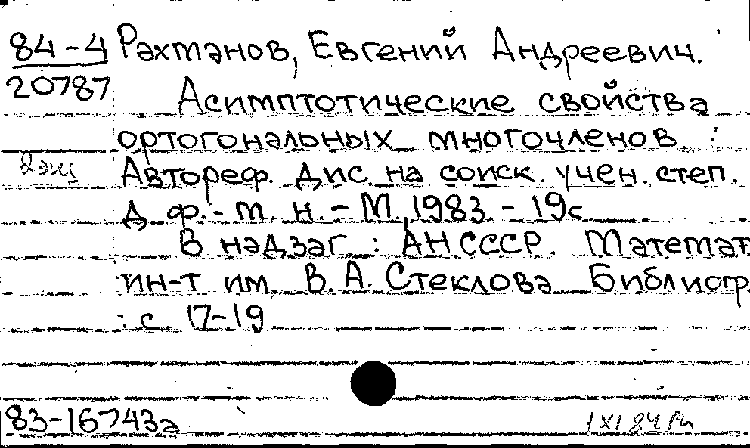 84-4 Рахманов, Евгений Андреевич.
20787
Асимптотические свойства
ортогональных многочленов :
2 экз
Автореф. дис. на соиск. учен. степ.
д. ф.-м. н. - М., 1983. - 19с
В надзаг. : АН СССР. Математ.
ин-т им. В. А. Стеклова. Библиогр.
: с. 17-19
83-16743а